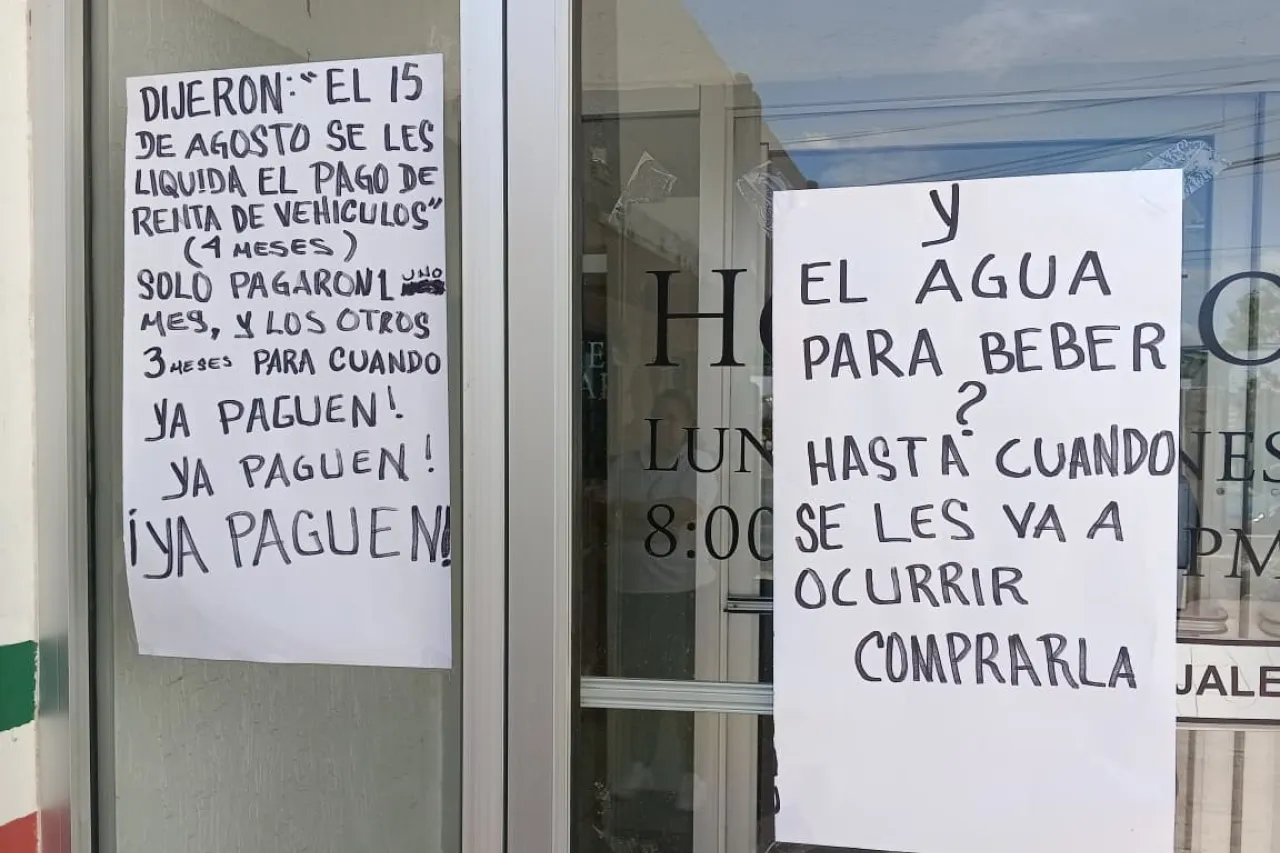 DIJERON: "EL 15
DE AGOSTO SE LES
LIQUIDA EL PAGO DE
RENTA DE VEHICULOS"
(4 MESES)
SOLO PAGARON 1 UNO
MES, Y LOS OTROS
3 MESES PARA CUANDO
YA PAGUEN!
YA PAGUEN!
¡YA PAGUEN!
Y
EL AGUA
PARA BEBER
?
HASTA CUANDO
SE LES VA A
OCURRIR
COMPRARLA
H
LUN
NES
8:00
PM
JALE